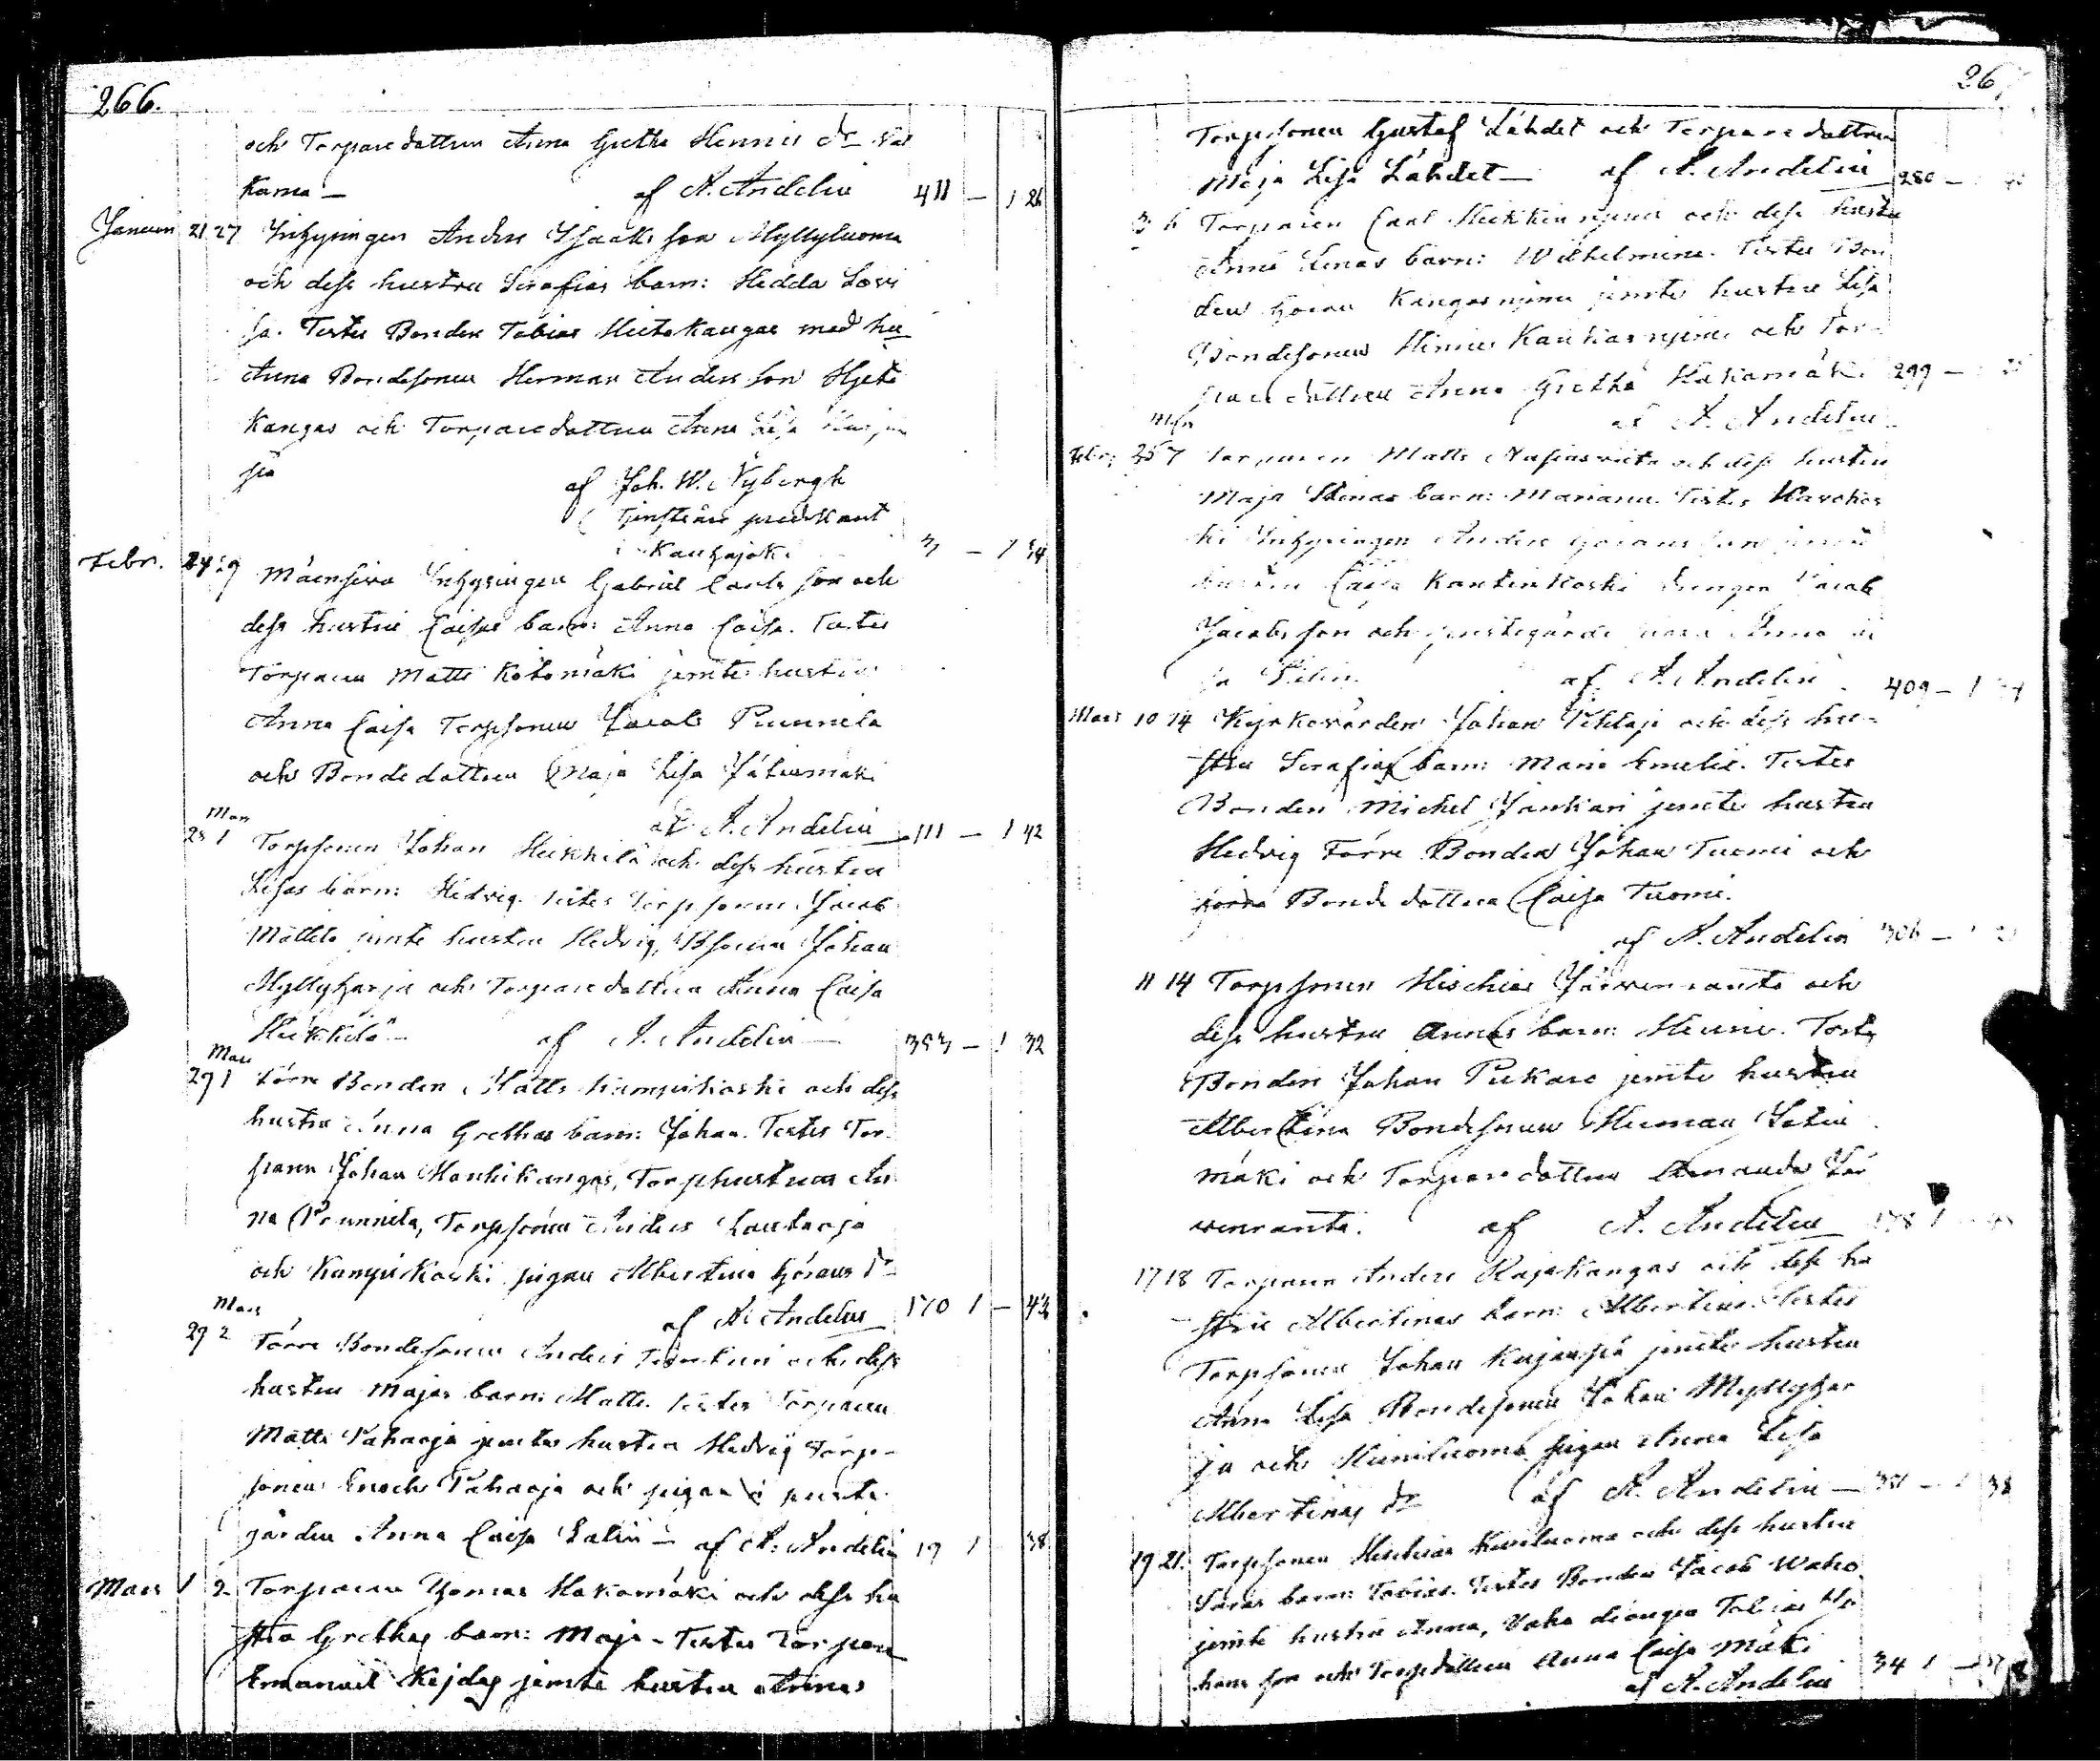 266.
och Torparedottren Anna Gretha Hennis dr Val
kama — af A. Andelin 411 — 1 26
Januari 21 27 Inhysingen Anders Isaaks son Myllyluoma
och dess hustru Serafias barn: Hedda Lovi
sa. Testes Bonden Tobias Hietakangas med hu
Anna Bondesonen Herman Anders son Hjeta
kangas och Torparedottren Anna Lisa
pä af Joh. W. Nybergh
Tjenstförr. predikant
i Kauhajoki 3 — 1 34
Febr. 24 29 Mäenperä Inhysingen Gabriel Carls son och
dess hustru Caisas barn: Anna Caisa. Testes
Torparen Matts Kotomäki jemte hustru
Anna Caisa Torpsonen Jacob Punnela
och Bondedottren Maja Lisa Jätinmäki
af A. Andelin 111 — 1 42
Mars
28 1 Torpsonen Johan Heikkilä och dess hustru
Lisas barn: Hedvig. Testes Torpsonen Jacob
Mattila jemte hustru Hedvig, Bsonen Johan
Myllyharja och Torparedottren Anna Caisa
Heikkilä — af A. Andelin — 353 — 1 32
Mars
29 1 Förre Bonden Matts Kampinkoski och dess
hustru Anna Grethas barn: Johan. Testes Tor
paren Johan Hanhikangas, Torphustrun An
na Punnela, Torpsonen Anders Lautaoja
och Kampinkoski pigan Albertina Görans dr
af A. Andelin 170 1 — 42
Mars
29 2 Förre Bondesonen Anders och dess
hustru Majas barn: Matts. Testes Torparen
Matts Pahaoja jemte hustru Hedvig Torp-
sonen Enoch Pahaoja och pigan i preste
gården Anna Caisa Salin — af A. Andelin 19 1 38
Mars 1 2 Torparen Thomas Hakomäki och dess hu
stru Grethas barn: Maja. Testes Torparen
Emanuel Kejdas jemte hustru Annas
26
Torpsonen Gustaf Lähdet och Torparedottren
Maja Lisa Lähdet — af A. Andelin 280 —
3 6 Torparen Carl Heikkinnjemi och dess hustru
Anna Lenas barn: Wilhelmina. Testes Bon
den Göran Kangasnjemi jemte hustru Lisa
Bondesonen Hinric Kauhasnjemi och Tor-
paredottren Anna Gretha Hakamäki 299 —
af A. Andelin
Mars
Febr. 25 7 Torparen Matts och dess hustru
Maja Stinas barn: Mariana. Testes
ki Inhysingen Anders Görans son jemte
hustru Caisa Kantinkoski drengen Jacob
Jacobs son och prestegårds Anna
af A. Andelin 409 — 1
Mars 10 14 Kyrkovärden Johan Pihlaja och dess hu-
stru Serafias barn: Maria Emelie. Testes
Bonden Michel Jankari jemte hustru
Hedvig Förre Bonden Johan Tuomi och
Bondedottren Caisa Tuomi.
af A. Andelin 306 —
11 14 Torpsonen Hischias Järvenranta och
dess hustru Annas barn: Henric. Testes
Bonden Johan Pukara jemte hustru
Albertina Bondesonen Herman Jätin
mäki och Torparedottren Amanda Jär
venranta. af A. Andelin 178 1
17 18 Torparen Anders Rajakangas och dess hu
stru Albertinas barn: Albertina. Testes
Torpsonen Johan Kujanpä jemte hustru
Anna Lisa Bondesonen Johan Myllyhar
ja och Hiiniluoma pigan Anna Lisa
Albertinas dr af A. Andelin — 38
19 21. Torpsonen Heikkias Kuniluoma och dess hustru
Saras barn: Tobias. Testes Bonden Jacob Waho
jemte hustru Anna, Vaho drengen Tobias
hans son och Torpdottren Anna Caisa Mäki
af A. Andelin 34 1